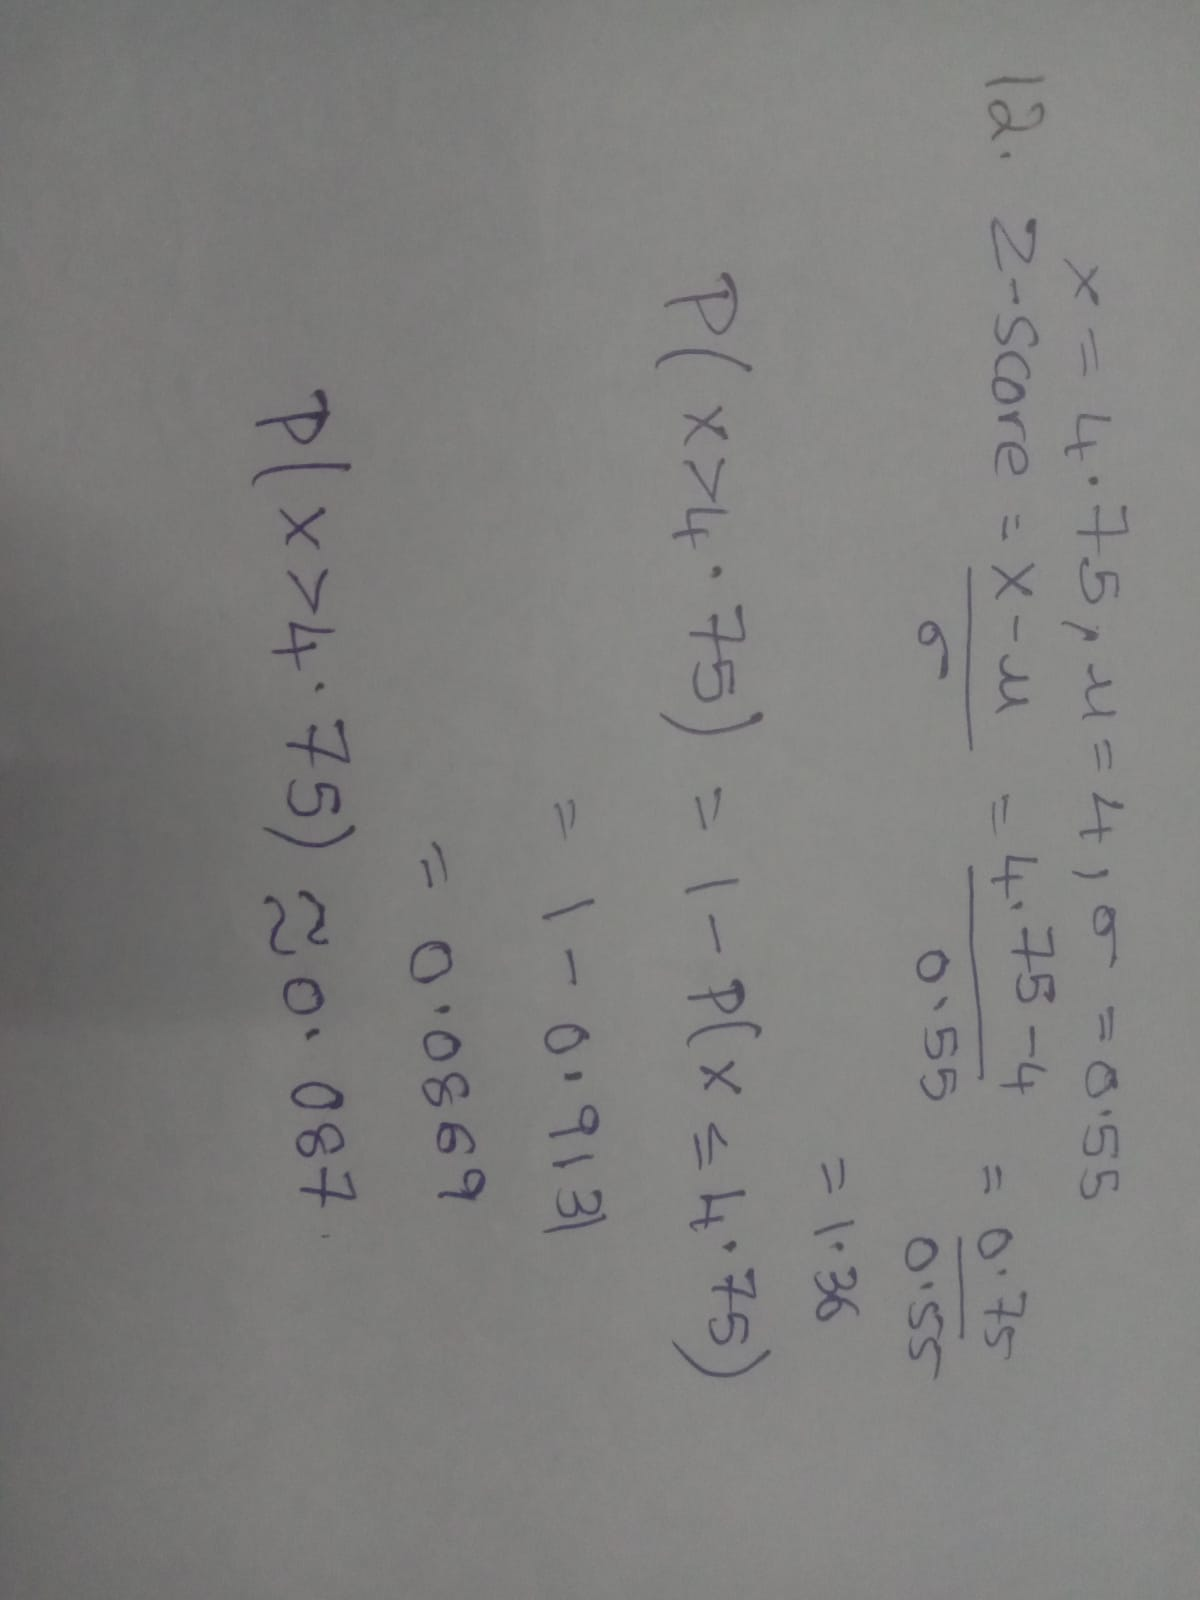 x = 4.75, μ = 4, σ = 0.55
12. Z-Score = x-μ/σ = 4.75-4/0.55 = 0.75/0.55
= 1.36
P(x>4.75) = 1-P(x≤4.75)
= 1-0.9131
= 0.0869
P(x>4.75) ≈ 0.087